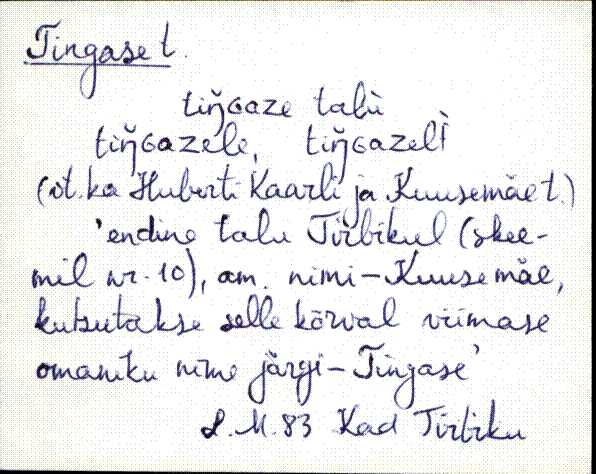 Tingase t.
tiŋ̆ɢaze talù
tiŋ̆ɢazele, tiŋ̆ɢazelì
(vt. ka Huberti Kaarli ja Kuusemäe t.)
'endine talu Tirbikul (skee-
mil nr. 10), am. nimi - Kuusemäe,
kutsutakse selle kõrval viimase
omaniku nime järgi - Tingase'
L. M. 83 Kad Tirbiku